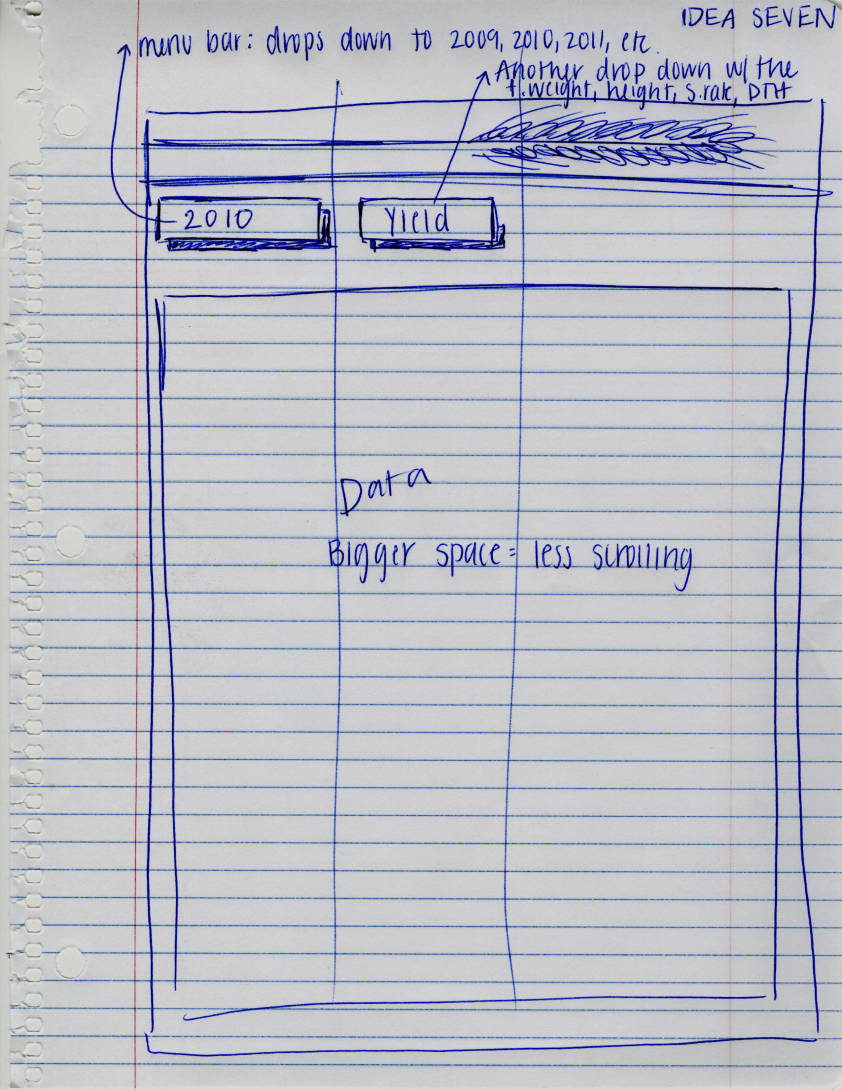 IDEA SEVEN
menu bar: drops down to 2009, 2010, 2011, etc.
Another drop down w/ the
t.weight, height, s.rate, DTH
2010
Yield
Data
Bigger space = less scrolling